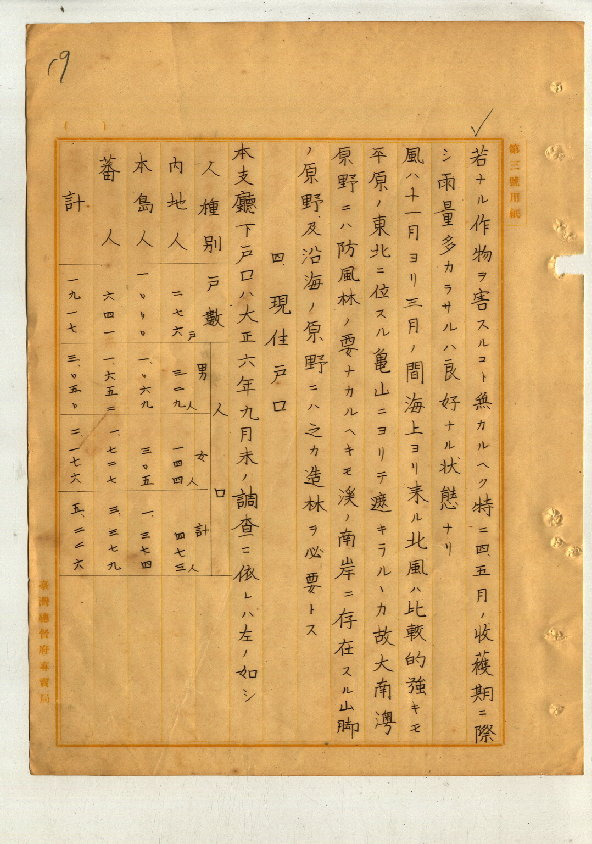 第三號用紙
19
若ナル作物ヲ害スルコト無カルヘク特ニ四、五月ノ收穫期ニ際
シ雨量多カラサルハ良好ナル状態ナリ
風ハ十一月ヨリ三月ノ間海上ヨリ来ル北風ハ比較的強キモ
平原ノ東北ニ位スル亀山ニヨリテ遮キラルヽカ故大南澳
原野ニハ防風林ノ要ナカルヘキモ溪ノ南岸ニ存在スル山脚
ノ原野及沿海ノ原野ニハ之カ造林ヲ必要トス
四、現住戸口
本支廳下戸口ハ大正六年九月末ノ調査ニ依レハ左ノ如シ
人種別 戸數 人口 男 女 計
内地人 二七六戸 三二九人 一四四人 四七三人
本島人 一、〇〇〇 一、〇六九 三〇五 一、三七四
蕃人 六四一 一、六五二 一、七二七 三、三七九
計 一九一七 三、〇五〇 二、一七六 五、二二六
臺灣總督府專賣局